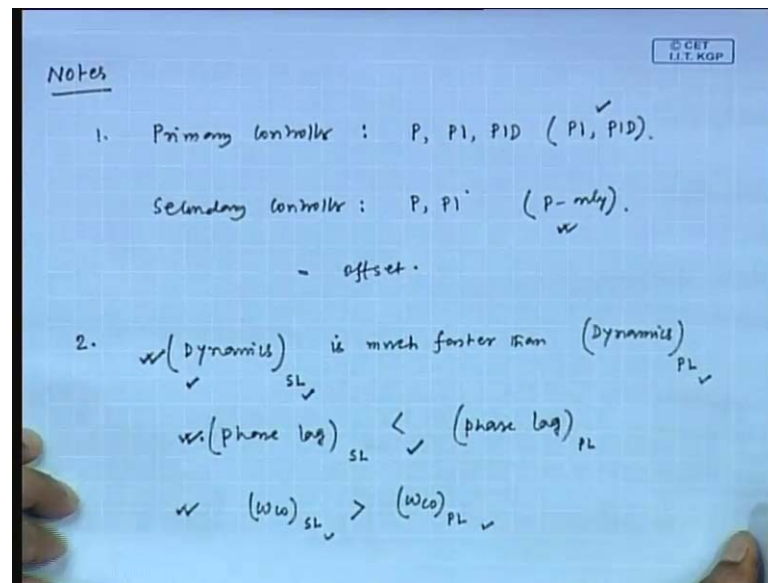 © CET
I.I.T. KGP
Notes
1. Primary controller : P, PI, PID (PI, PID).
Secondary controller : P, PI (P-only).
- offset.
2. (Dynamics)SL is much faster than (Dynamics)PL
(phase lag)SL < (phase lag)PL
(ωco)SL > (ωco)PL